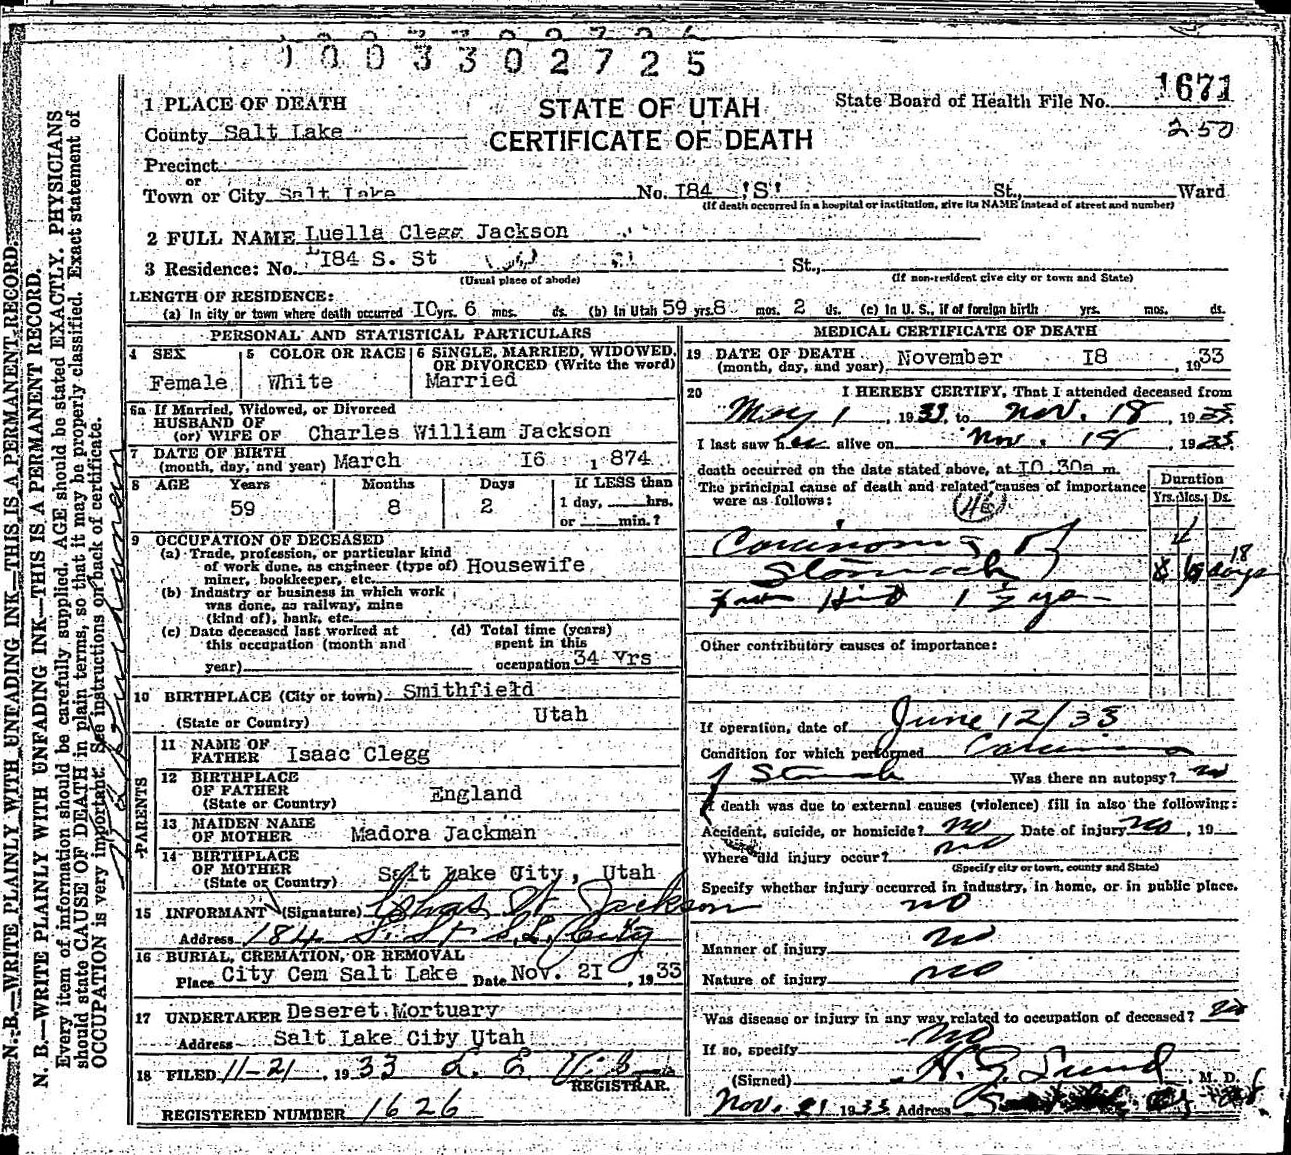 1003302725
1 PLACE OF DEATH
County Salt Lake
STATE OF UTAH
CERTIFICATE OF DEATH
State Board of Health File No. 1671
250
Precinct
or
Town or City Salt Lake No. I84 'S' St., Ward
(If death occurred in a hospital or institution, give its NAME instead of street and number)
2 FULL NAME Luella Clegg Jackson
3 Residence: No. I84 S. St St.,
(Usual place of abode) (If non-resident give city or town and State)
LENGTH OF RESIDENCE:
(a) In city or town where death occurred IO yrs. 6 mos. ds. (b) In Utah 59 yrs. 8 mos. 2 ds. (c) In U. S., if of foreign birth yrs. mos. ds.
PERSONAL AND STATISTICAL PARTICULARS
4 SEX
Female
5 COLOR OR RACE
White
6 SINGLE, MARRIED, WIDOWED,
OR DIVORCED (Write the word)
Married
6a If Married, Widowed, or Divorced
HUSBAND OF
(or) WIFE OF Charles William Jackson
7 DATE OF BIRTH
(month, day, and year) March I6 , 1874
8 AGE Years Months Days If LESS than
59 8 2 1 day, hrs.
or min.?
9 OCCUPATION OF DECEASED
(a) Trade, profession, or particular kind
of work done, as engineer (type of) Housewife
miner, bookkeeper, etc.
(b) Industry or business in which work
was done, as railway, mine
(kind of), bank, etc.
(c) Date deceased last worked at
this occupation (month and
year)
(d) Total time (years)
spent in this
occupation 34 Yrs
10 BIRTHPLACE (City or town) Smithfield
(State or Country) Utah
PARENTS
11 NAME OF
FATHER Isaac Clegg
12 BIRTHPLACE
OF FATHER
(State or Country) England
13 MAIDEN NAME
OF MOTHER Madora Jackman
14 BIRTHPLACE
OF MOTHER
(State or Country) Salt Lake City, Utah
15 INFORMANT (Signature) Chas W. Jackson
Address 184 S. St S.L. City
16 BURIAL, CREMATION, OR REMOVAL
Place City Cem Salt Lake Date Nov. 2I , 1933
17 UNDERTAKER Deseret Mortuary
Address Salt Lake City Utah
18 FILED 11-21 , 1933
REGISTRAR.
REGISTERED NUMBER 1626
MEDICAL CERTIFICATE OF DEATH
19 DATE OF DEATH
(month, day, and year) November I8 , 1933
20 I HEREBY CERTIFY, That I attended deceased from
May 1 , 1933, to Nov. 18 , 1933.
I last saw her alive on Nov. 18 , 1933.
death occurred on the date stated above, at IO.30a m.
The principal cause of death and related causes of importance
were as follows:
Duration
Yrs. Mos. Ds.
Carcinoma of
Stomach
18
days
1 1/2 yr
Other contributory causes of importance:
If operation, date of June 12/33
Condition for which performed Carcinoma
of Stomach Was there an autopsy? no
If death was due to external causes (violence) fill in also the following:
Accident, suicide, or homicide? no Date of injury no , 19
Where did injury occur? no
(Specify city or town, county and State)
Specify whether injury occurred in industry, in home, or in public place.
no
Manner of injury no
Nature of injury no
Was disease or injury in any way related to occupation of deceased? no
If so, specify no
(Signed) , M. D.
Nov. 21 1933 Address
N. B.—WRITE PLAINLY WITH UNFADING INK—THIS IS A PERMANENT RECORD.
N. B.—WRITE PLAINLY WITH UNFADING INK—THIS IS A PERMANENT RECORD.
Every item of information should be carefully supplied. AGE should be stated EXACTLY. PHYSICIANS
should state CAUSE OF DEATH in plain terms, so that it may be properly classified. Exact statement of
OCCUPATION is very important. See instructions on back of certificate.